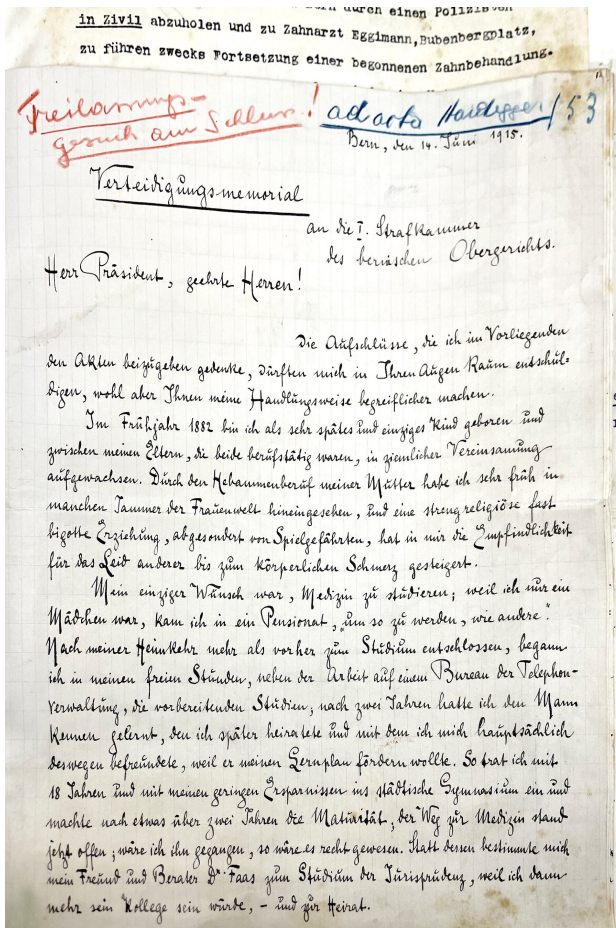 durch einen Polizisten
in Zivil abzuholen und zu Zahnarzt Eggimann, Bubenbergplatz,
zu führen zwecks Fortsetzung einer begonnenen Zahnbehandlung.
Freilassungs-
gesuch am Schluss!
ad acta Hardegger / 53
Bern, den 14. Juni 1915.
Verteidigungsmemorial
an die I. Strafkammer
des bernischen Obergerichts.
Herr Präsident, geehrte Herren!
Die Aufschlüsse, die ich im Vorliegenden
den Akten beizugeben gedenke, dürften mich in Ihren Augen kaum entschul-
digen, wohl aber Ihnen meine Handlungsweise begreiflicher machen.
Im Frühjahr 1882 bin ich als sehr spätes und einziges Kind geboren und
zwischen meinen Eltern, die beide berufstätig waren, in ziemlicher Vereinsamung
aufgewachsen. Durch den Hebammenberuf meiner Mutter habe ich sehr früh in
manchen Jammer der Frauenwelt hineingesehen, und eine streng religiöse fast
bigotte Erziehung, abgesondert von Spielgefährten, hat in mir die Empfindlichkeit
für das Leid anderer bis zum körperlichen Schmerz gesteigert.
Mein einziger Wunsch war, Medizin zu studieren; weil ich nur ein
Mädchen war, kam ich in ein Pensionat, „um so zu werden, wie andere".
Nach meiner Heimkehr mehr als vorher zum Studium entschlossen, begann
ich in meinen freien Stunden, neben der Arbeit auf einem Bureau der Telephon-
verwaltung, die vorbereitenden Studien; nach zwei Jahren hatte ich den Mann
kennen gelernt, den ich später heiratete und mit dem ich mich hauptsächlich
deswegen befreundete, weil er meinen Lernplan fördern wollte. So trat ich mit
18 Jahren und mit meinen geringen Ersparnissen ins städtische Gymnasium ein und
machte nach etwas über zwei Jahren die Maturität; der Weg zur Medizin stand
jetzt offen; wäre ich ihn gegangen, so wäre es recht gewesen. Statt dessen bestimmte mich
mein Freund und Berater Dr. Faas zum Studium der Jurisprudenz, weil ich dann
mehr sein Kollege sein würde, – und zur Heirat.